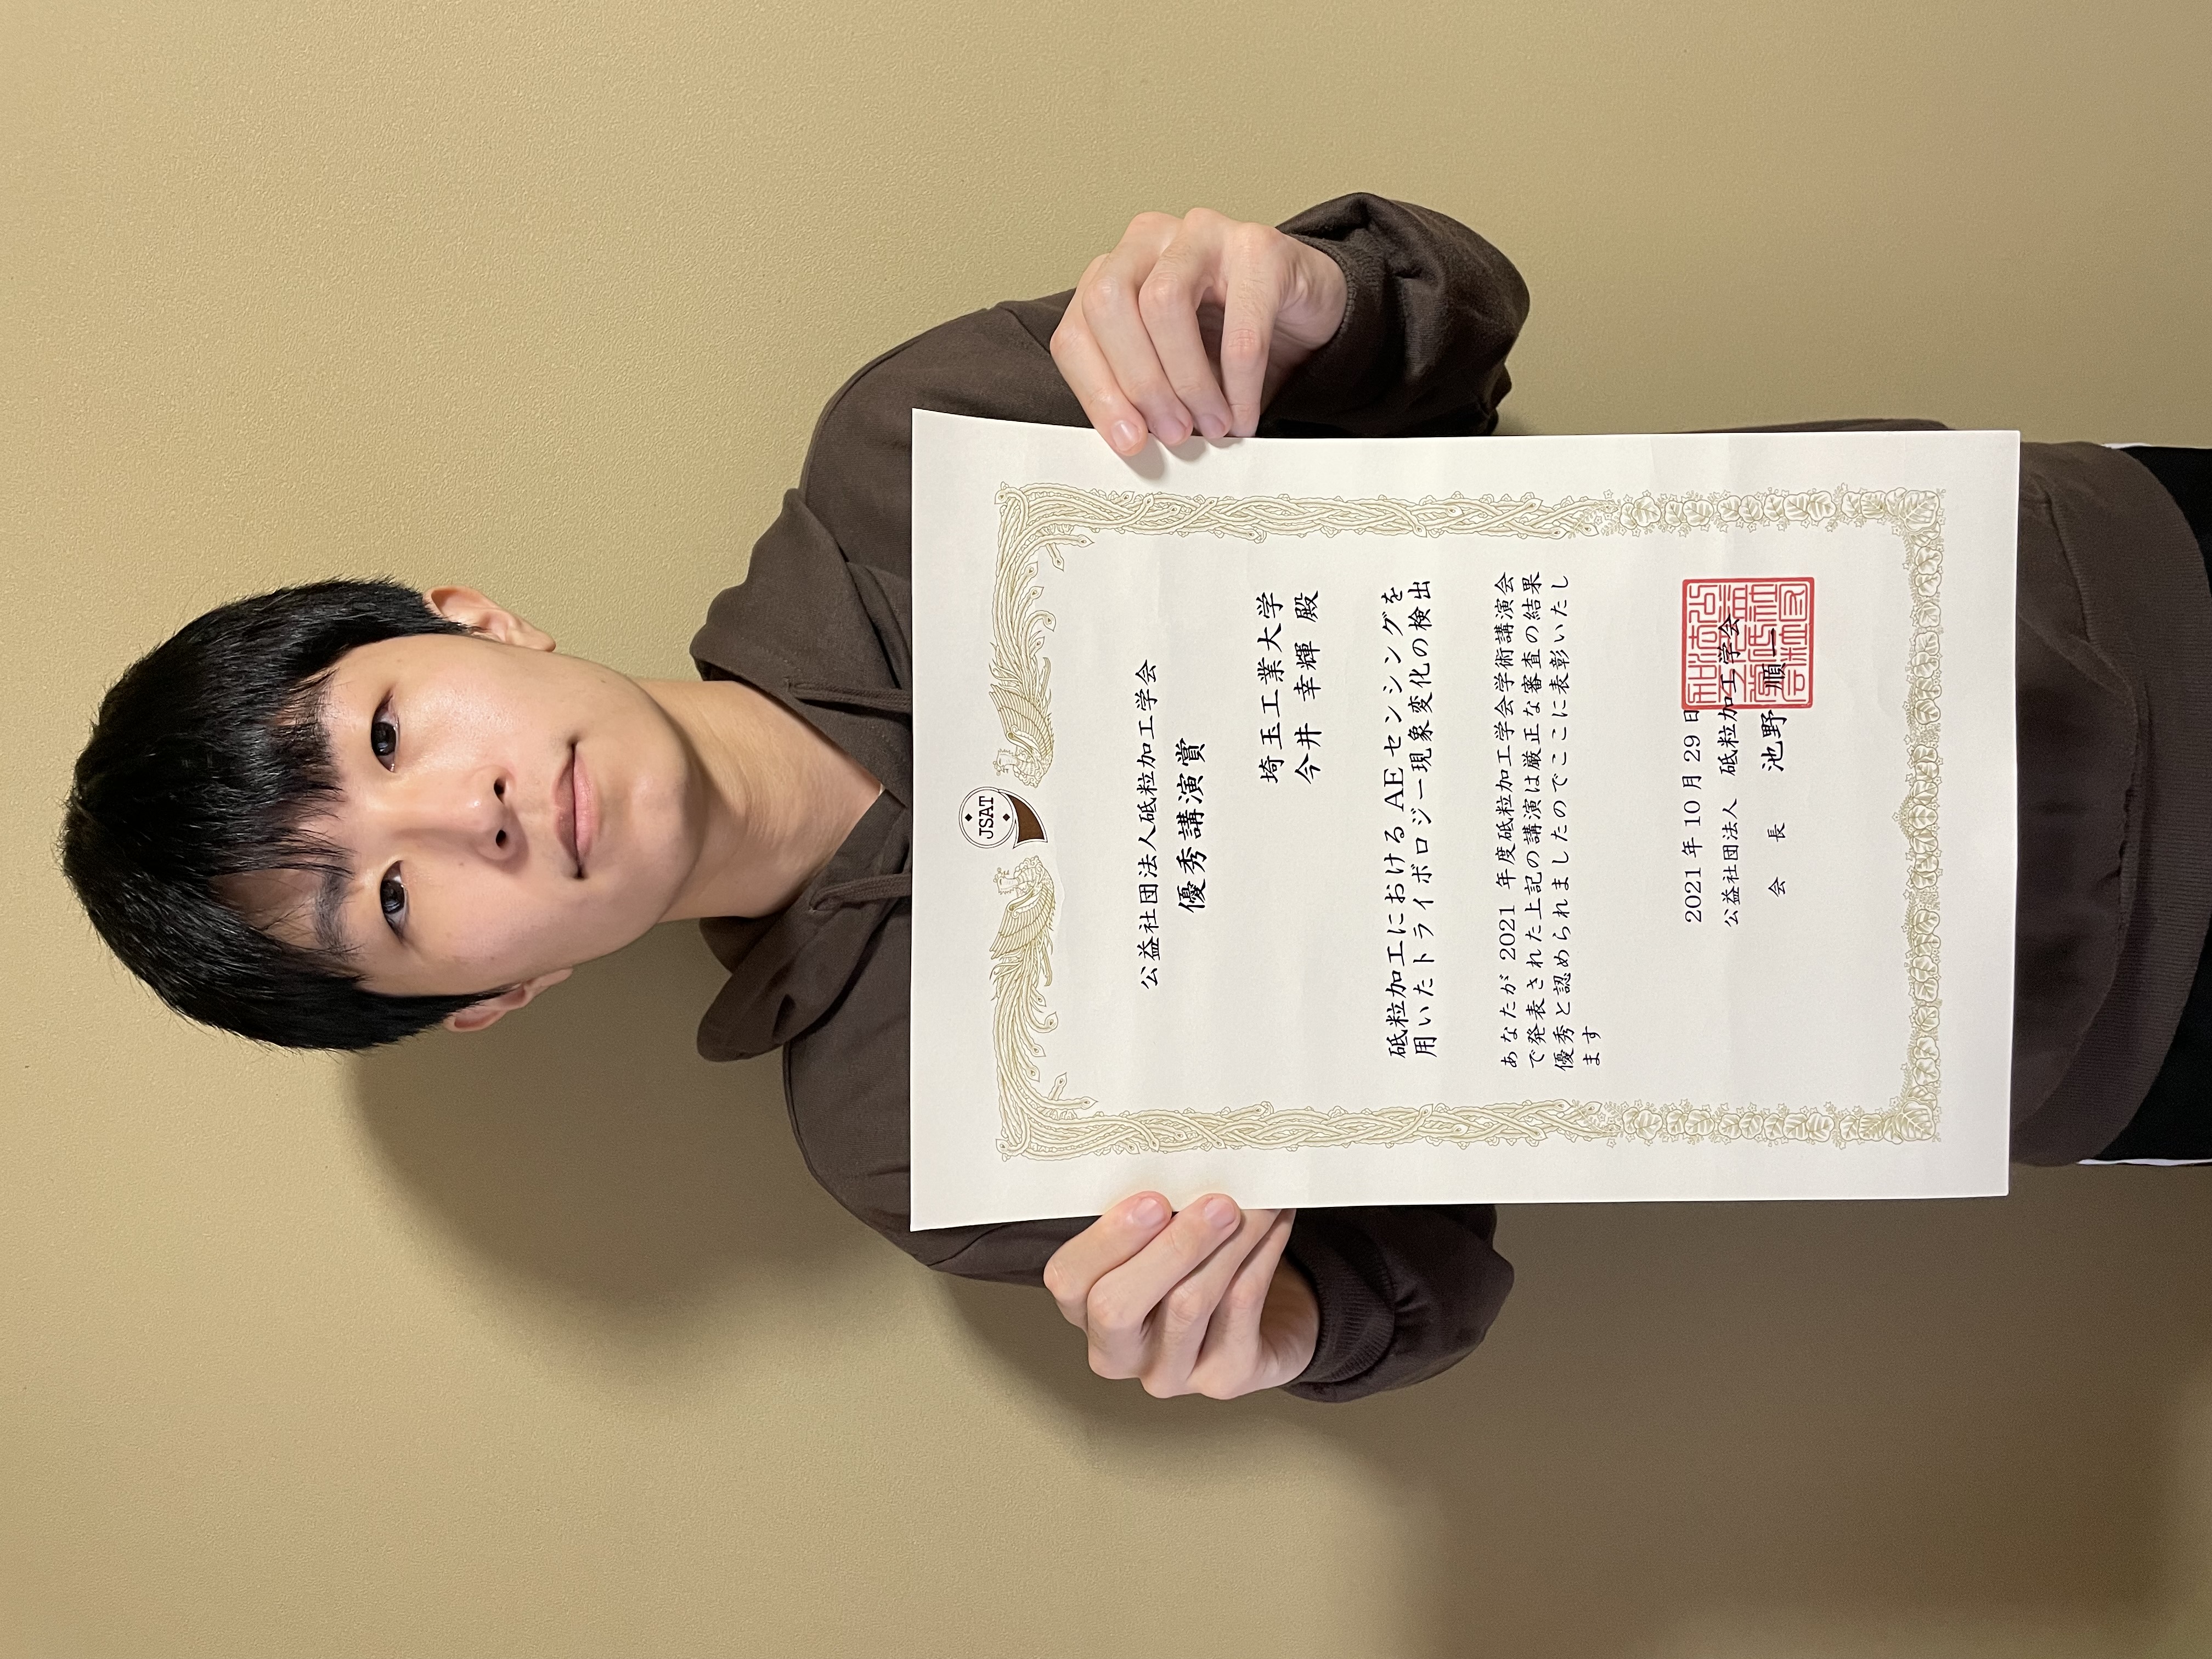 JSAT
公益社団法人砥粒加工学会
優秀講演賞
埼玉工業大学
今井 幸輝 殿
砥粒加工における AE センシングを
用いたトライボロジー現象変化の検出
あなたが 2021 年度砥粒加工学会学術講演会
で発表された上記の講演は厳正な審査の結果
優秀と認められましたのでここに表彰いたし
ます
2021 年 10 月 29 日
公益社団法人 砥粒加工学会
会 長 池野 順一